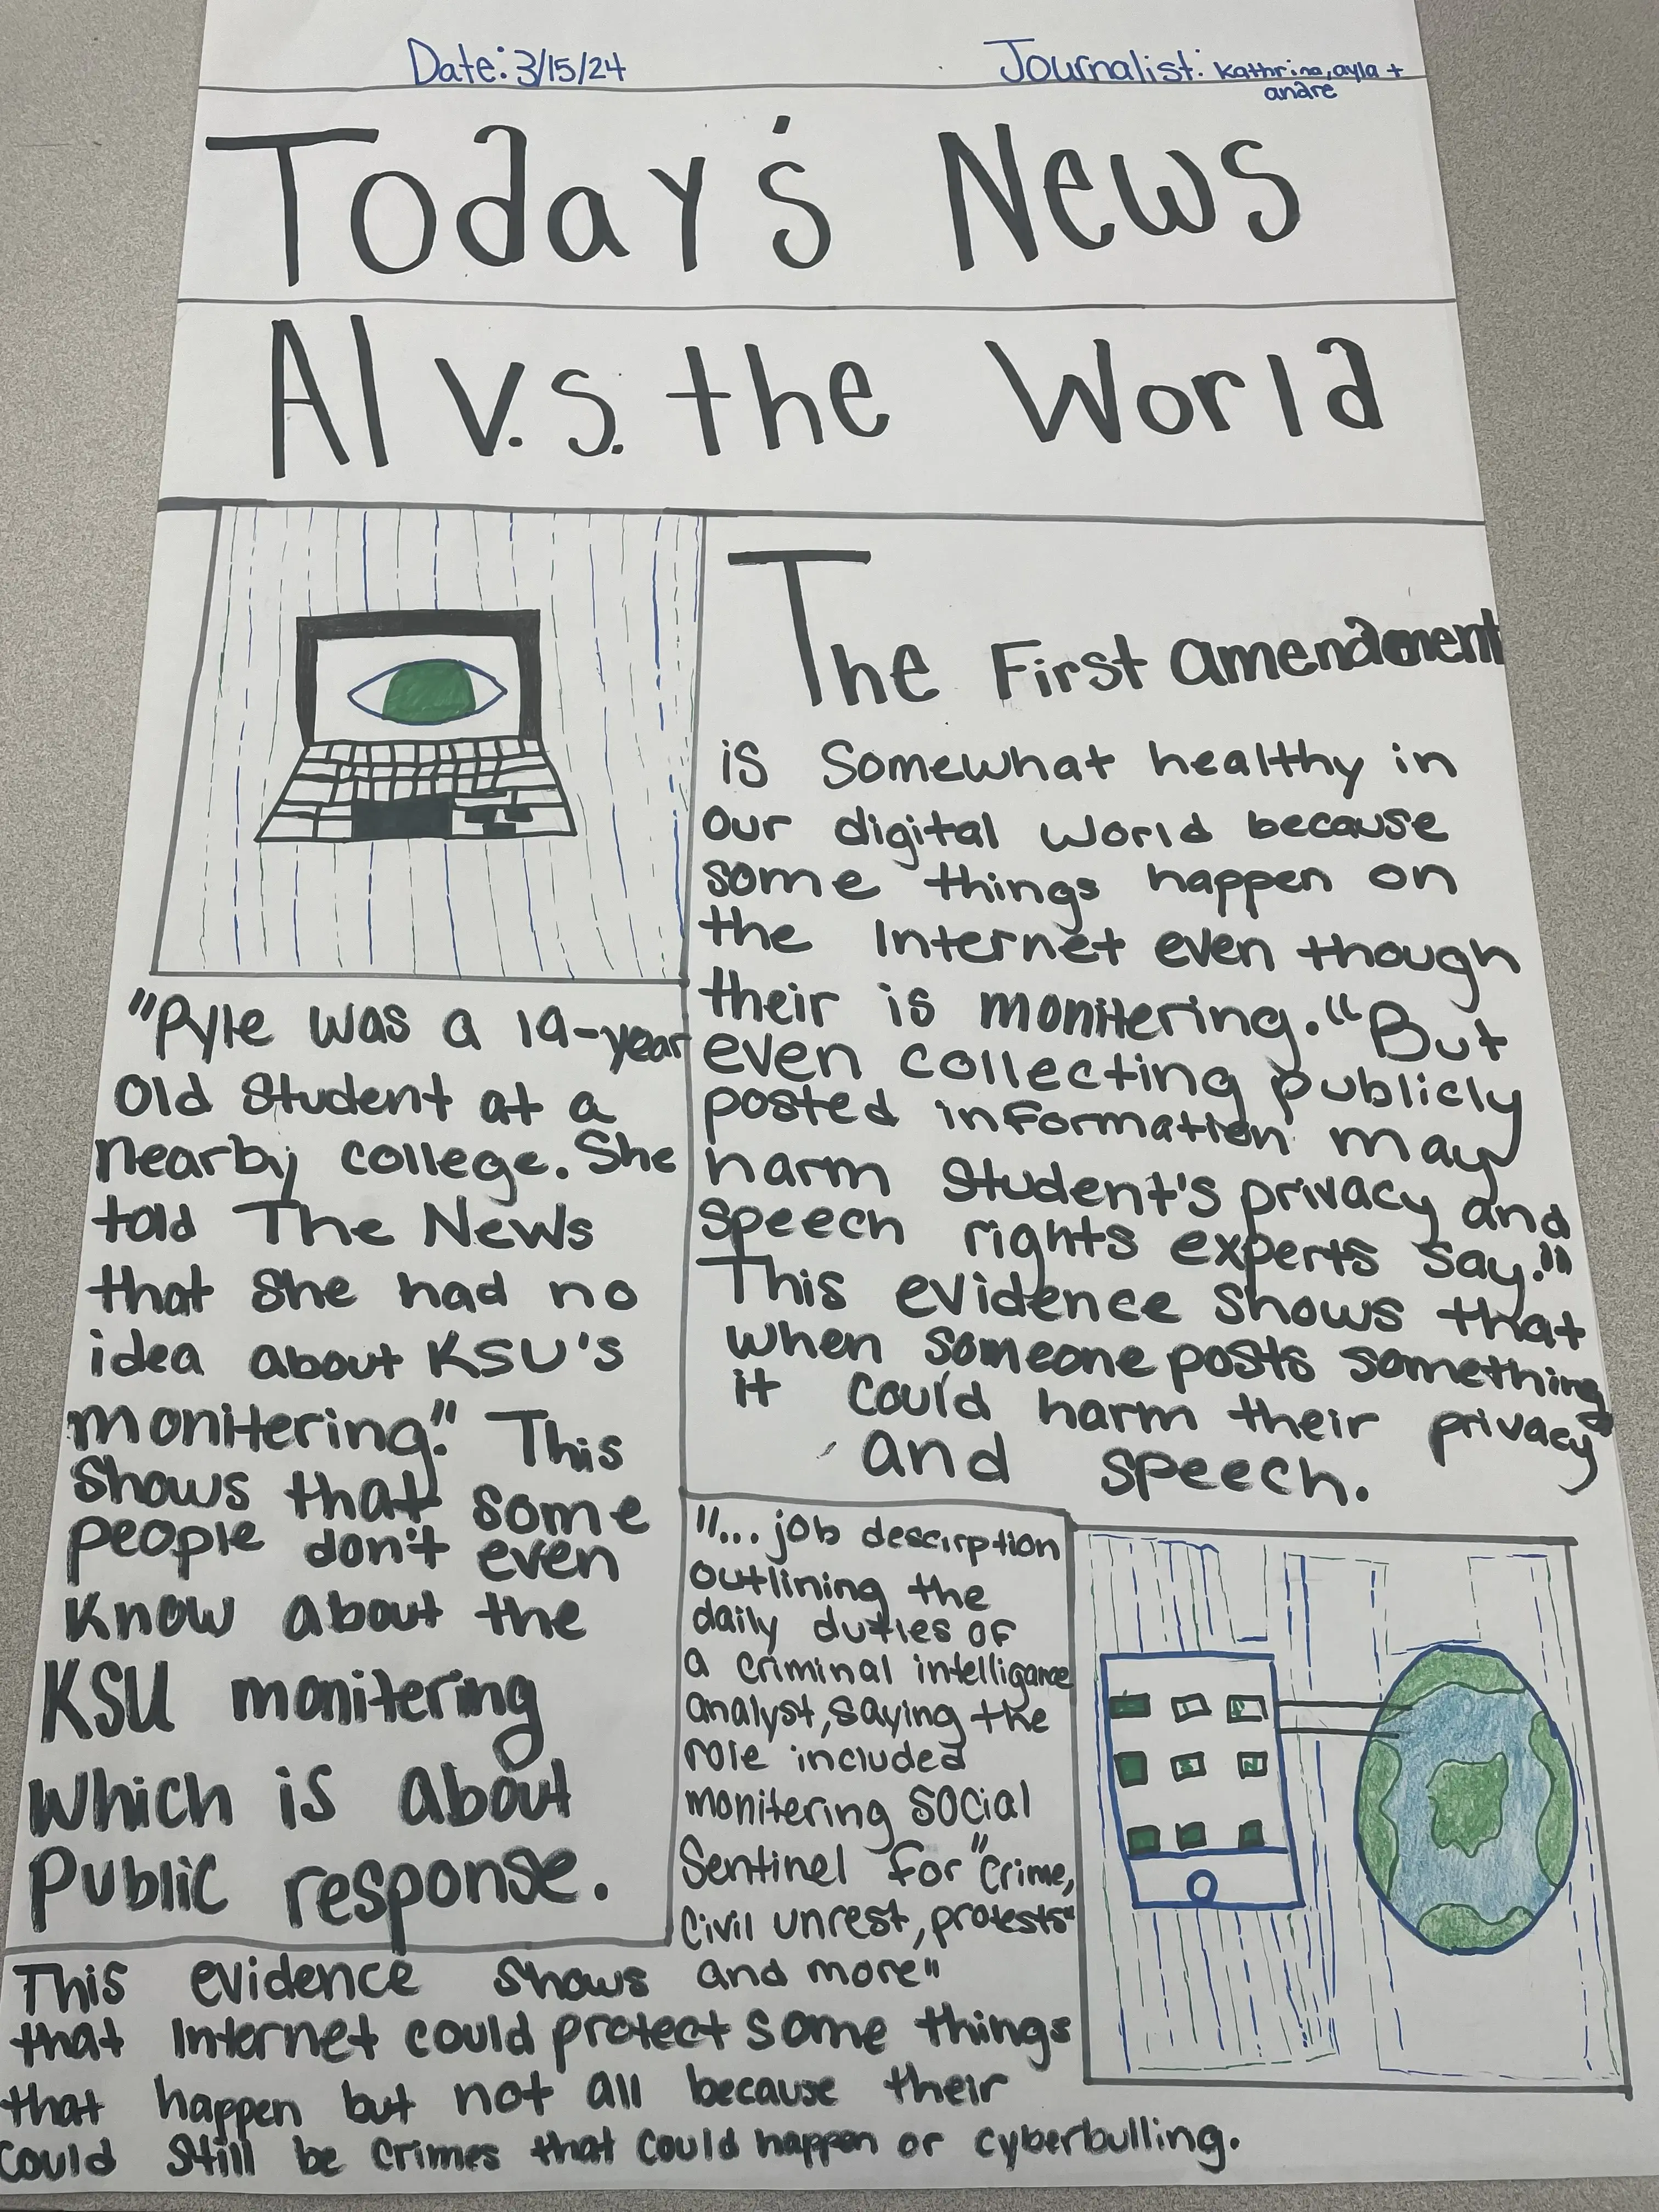 Date: 3/15/24
Journalist: Kathrina, ayla +
andre
Today's News
AI v.s. the World
The First amendment
is somewhat healthy in
our digital world because
some things happen on
the Internet even though
their is monitering. "But
even collecting publicly
posted information may
harm student's privacy and
speech rights experts say."
This evidence shows that
when someone posts something
it could harm their privacy
and speech.
"Pyle was a 19-year
old student at a
nearby college. She
told The News
that she had no
idea about KSU's
monitering." This
shows that some
people don't even
know about the
KSU monitering
which is about
Public response.
"... job descirption
outlining the
daily duties of
a criminal intelligance
analyst, saying the
role included
monitering social
Sentinel for "crime,
civil unrest, protests"
and more"
This evidence shows
that Internet could protect some things
that happen but not all because their
could still be crimes that could happen or cyberbulling.